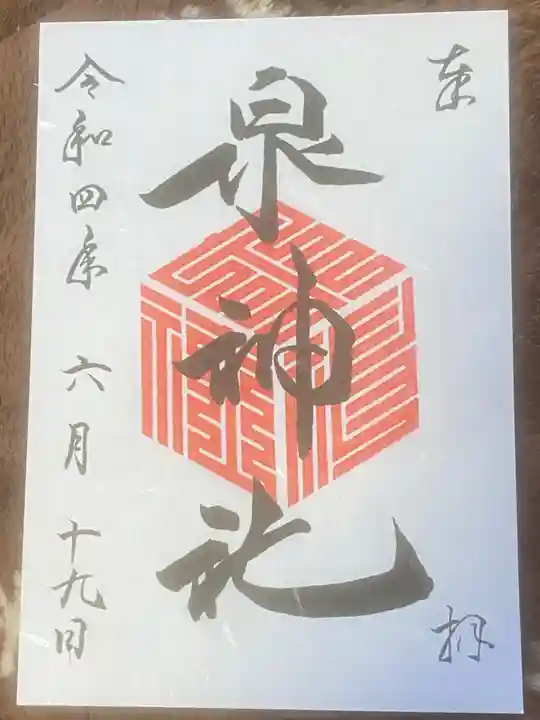 奉拝
泉神社
令和四年 六月 十九日